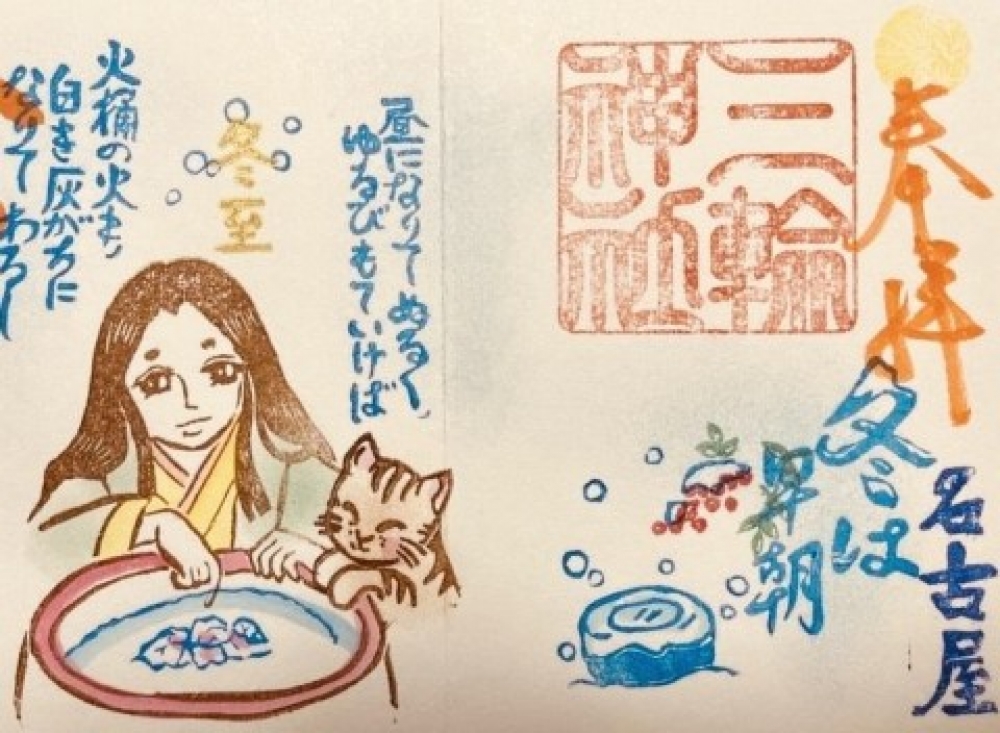 奉拝
名古屋
冬は
早朝
三輪
神社
昼になりてぬるく、
ゆるびもていけば
冬至
火桶の火も、
白き灰がちに
なりてわろし